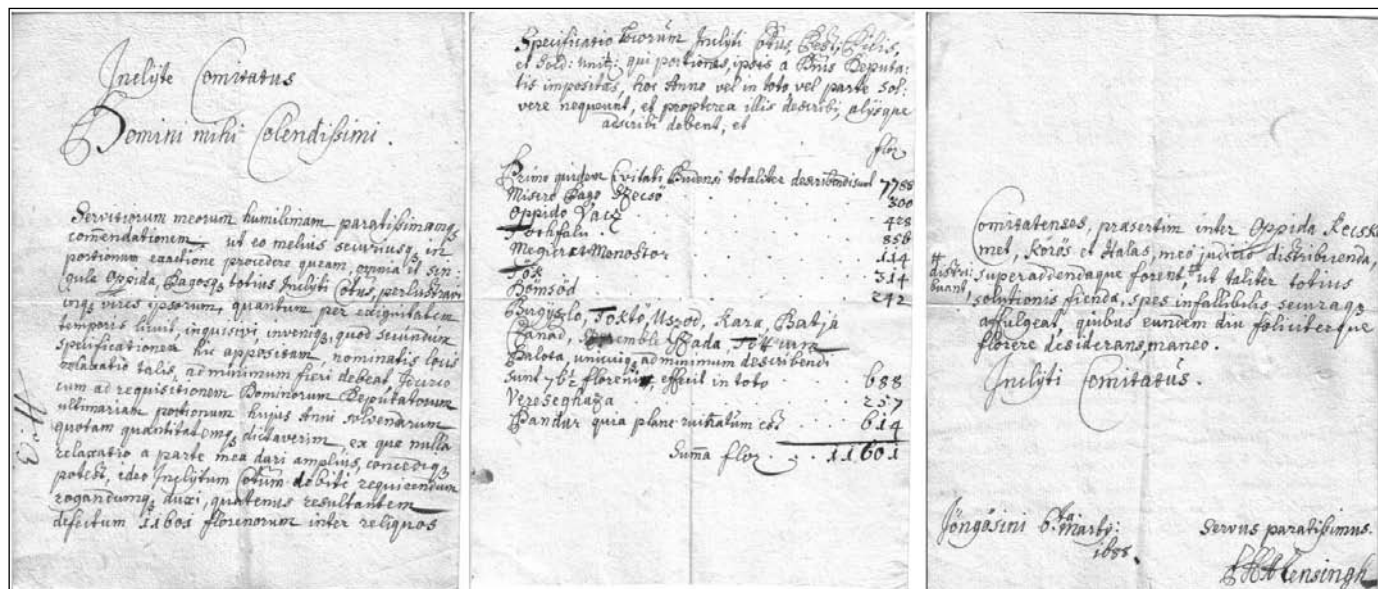 Inclyte Comitatus
Domini mihi Colendissimi.
Servitiorum meorum humilimam paratissimamq₃
comendationem, ut eo melius securiusq₃ in
portionum exactione procedere queam, omnia et sin:
gula Oppida, Pagosq₃ totius Inclyti Cottus, perlustravi
vires ipsorum, quantum per exiguitatem
temporis licuit, inquisivi, inveniq₃, quod secundum
specificationem hic appositam, nominatis locis
relaxatio talis, ad minimum fieri debeat,
cum ad requisitionem Dominorum Deputatorum
ultimariam portionum hujus Anni solvendarum
quotam quantitatemq₃ dictaverim, ex que nulla
relaxatio a parte mea dari amplius, concediq₃
potest, ideo Inclytum Cottum debiti requirendum
rogandumq₃ duxi, quatenus resultantem
defectum 11601 florenorum inter reliquos
Specificatio locorum Inclyti Cottus Pest: Pilis,
et Sold: unit: qui portiones, ipsis a Dnis Deputa:
tis impositas, hoc Anno vel in toto vel parte sol:
vere nequeunt, et propterea illis describi, alysque
adscribi debent, et
flor
Primo quidem Civitati Budensi totaliter describendi sunt 7788
Misero Pago Kecső . . . 300
Oppido Vacz . . . 428
Tothfalu . . . 856
Megier et Monostor . . . 114
Tök . . . 314
Dömsöd . . . 242
Bogyszlo, Foktö, Uszod, Kara, Batja
Csanad, Kada,
Palota, unicuiq₃ ad minimum describendi
sunt florenis, efficit in toto . . . 688
Vereseghaza . . . 257
Bandur quia plane est . . . 614
Suma flor . . . 11601
Comitatenses, præsertim inter Oppida Kecske
met, Körös et Halas, meo judicio distribuenda,
distri:
buant,
superaddendaque forent, ut taliter totius
solutionis fienda, spes infallibilis securaq₃
affulgeat, quibus eundem diu foliciterque
florere desiderans, maneo.
Inclyti Comitatus.
Jöngösini 6ta Marty:
1688.
Servus paratissimus.